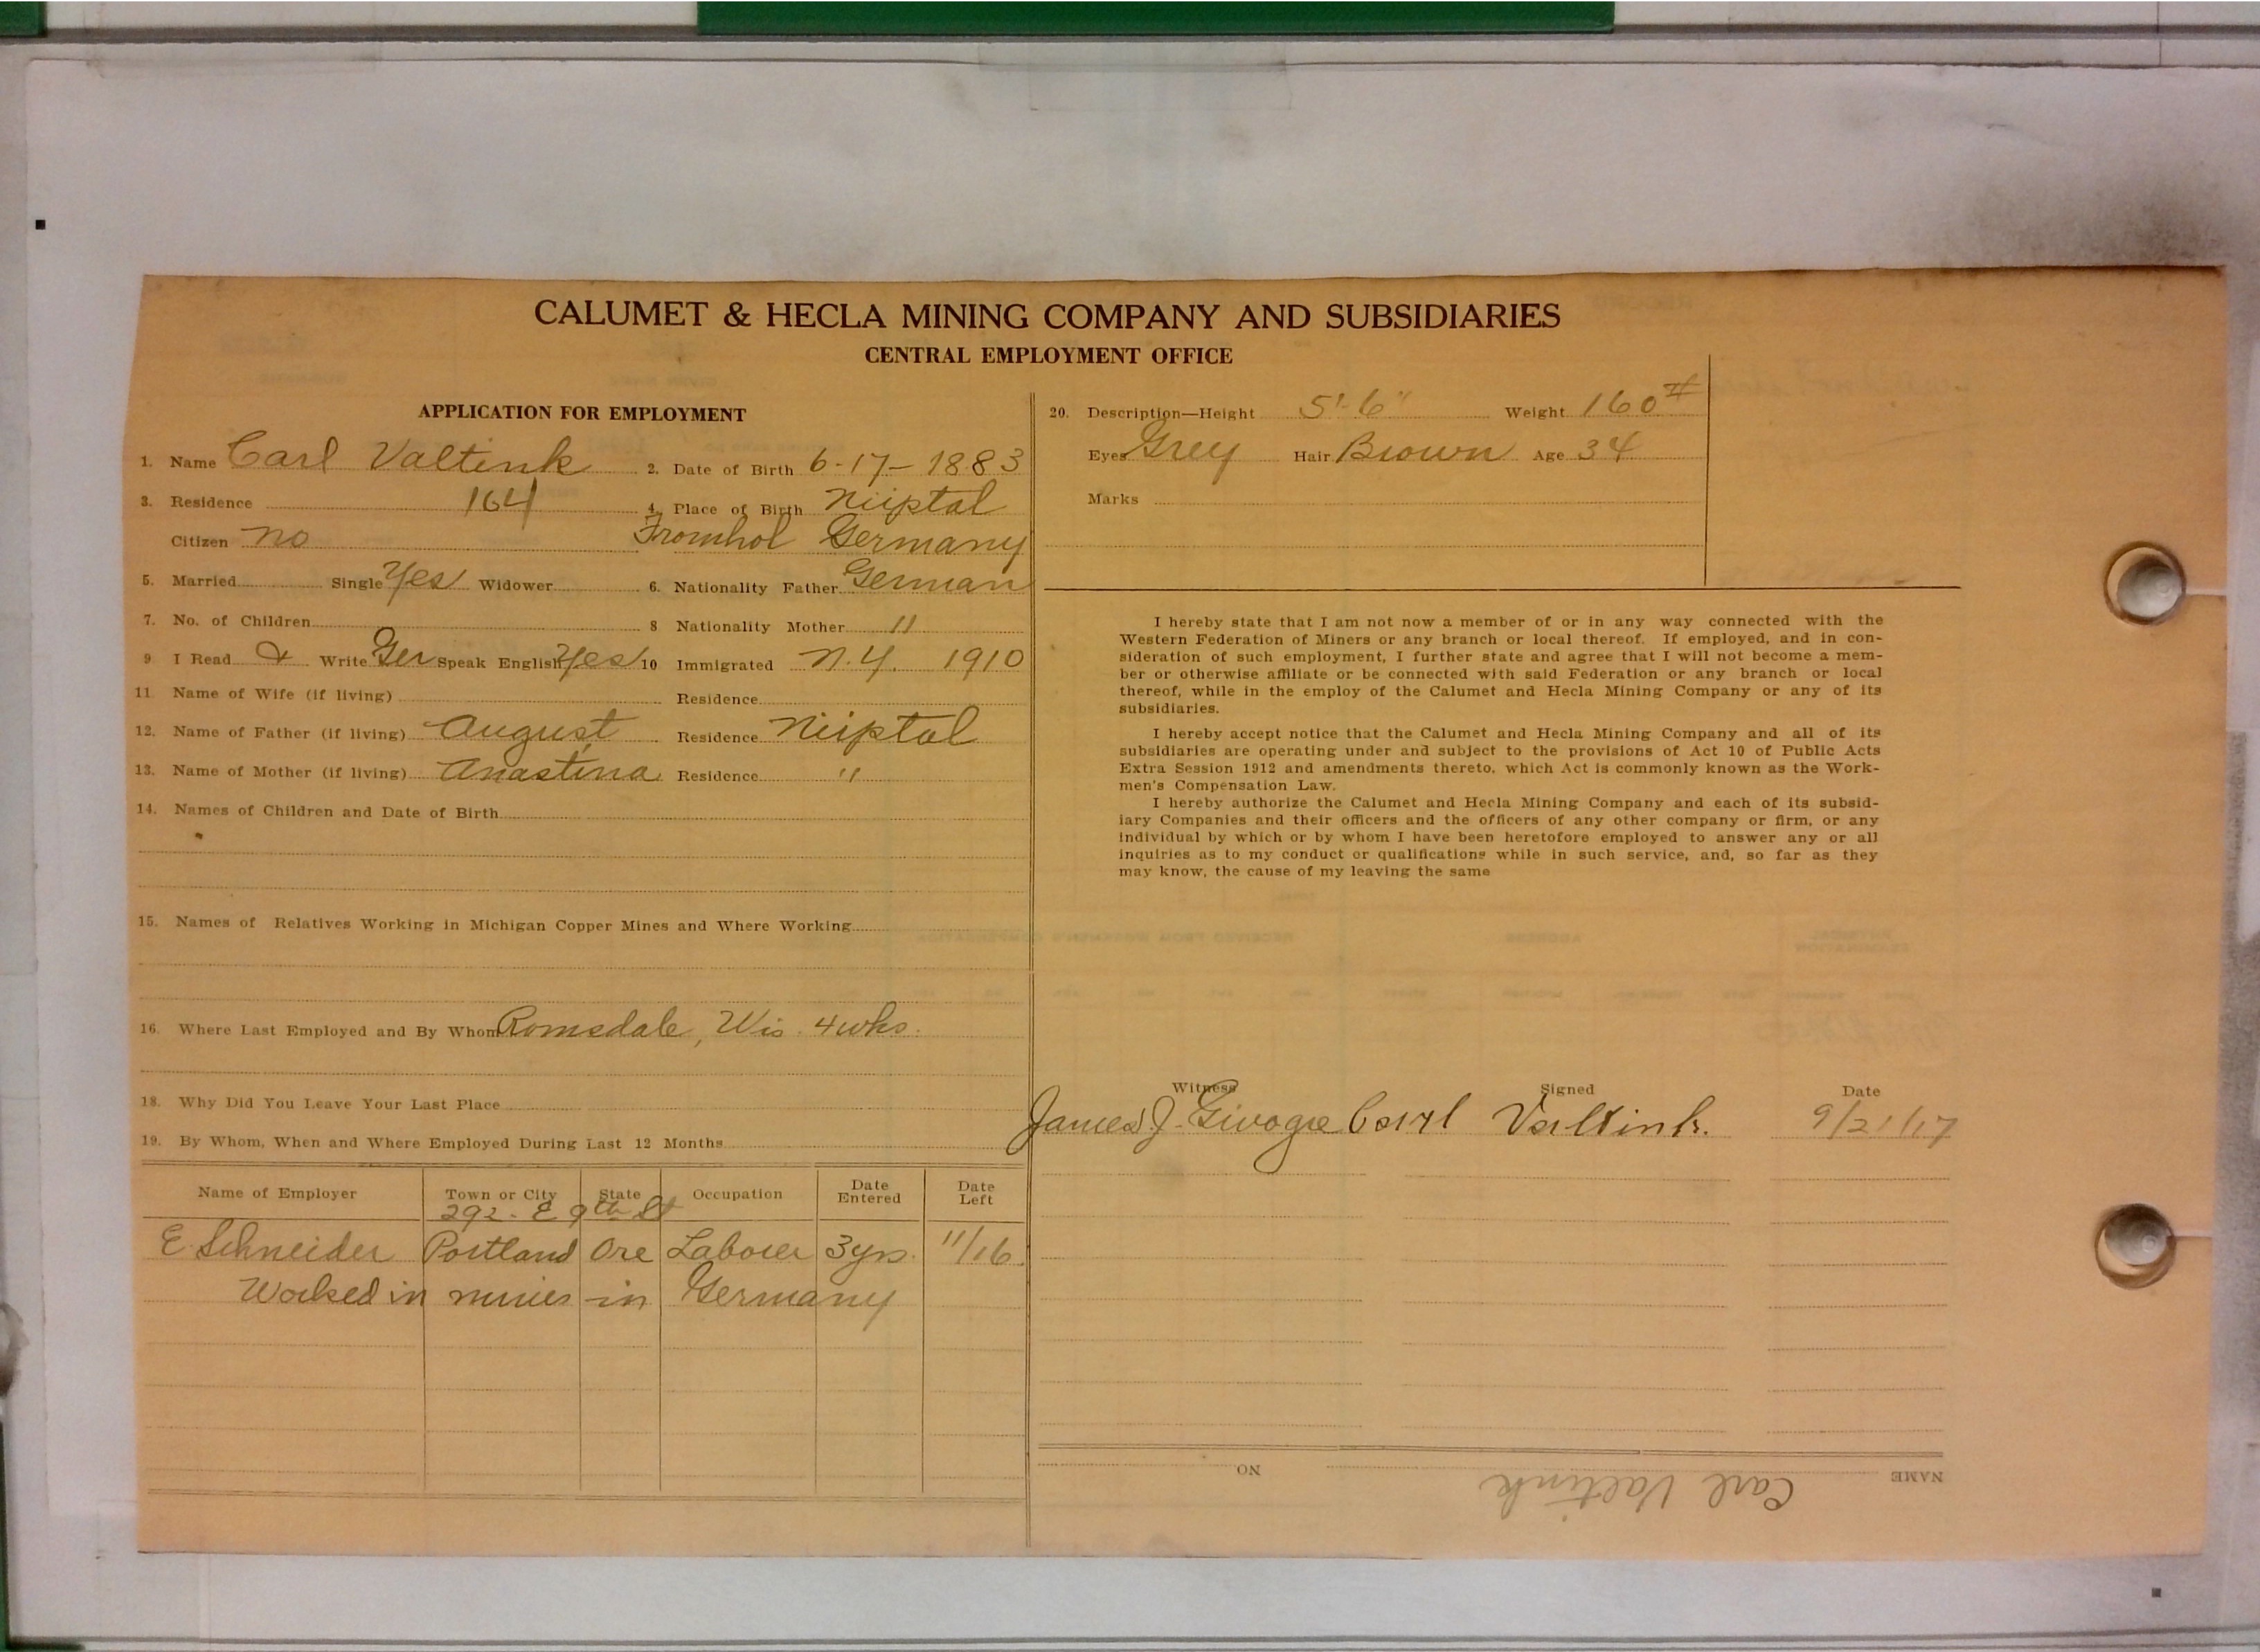 CALUMET & HECLA MINING COMPANY AND SUBSIDIARIES
CENTRAL EMPLOYMENT OFFICE
APPLICATION FOR EMPLOYMENT
1. Name Carl Valtink 2. Date of Birth 6-17-1883
3. Residence 164 4. Place of Birth Niiptal
Citizen no Fromhol Germany
5. Married Single Yes Widower 6. Nationality Father German
7. No. of Children 8 Nationality Mother "
9 I Read & Write Ger Speak English Yes 10 Immigrated N.Y. 1910
11 Name of Wife (if living) Residence
12. Name of Father (if living) August Residence Niiptal
13. Name of Mother (if living) Anastina Residence "
14. Names of Children and Date of Birth
15. Names of Relatives Working in Michigan Copper Mines and Where Working
16. Where Last Employed and By Whom Romsdale, Wis. 4 wks.
18. Why Did You Leave Your Last Place
19. By Whom, When and Where Employed During Last 12 Months
Name of Employer Town or City State Occupation Date Entered Date Left
292- E 9th St
E Schneider Portland Ore Laborer 3 yrs. 11/16
Worked in mines in Germany
20. Description—Height 5'-6" Weight 160#
Eyes Grey Hair Brown Age 34
Marks
I hereby state that I am not now a member of or in any way connected with the
Western Federation of Miners or any branch or local thereof. If employed, and in con-
sideration of such employment, I further state and agree that I will not become a mem-
ber or otherwise affiliate or be connected with said Federation or any branch or local
thereof, while in the employ of the Calumet and Hecla Mining Company or any of its
subsidiaries.
I hereby accept notice that the Calumet and Hecla Mining Company and all of its
subsidiaries are operating under and subject to the provisions of Act 10 of Public Acts
Extra Session 1912 and amendments thereto, which Act is commonly known as the Work-
men's Compensation Law.
I hereby authorize the Calumet and Hecla Mining Company and each of its subsid-
iary Companies and their officers and the officers of any other company or firm, or any
individual by which or by whom I have been heretofore employed to answer any or all
inquiries as to my conduct or qualifications while in such service, and, so far as they
may know, the cause of my leaving the same
Witness Signed Date
James J. Carl Valtink. 9/21/17
NAME Carl Valtink NO